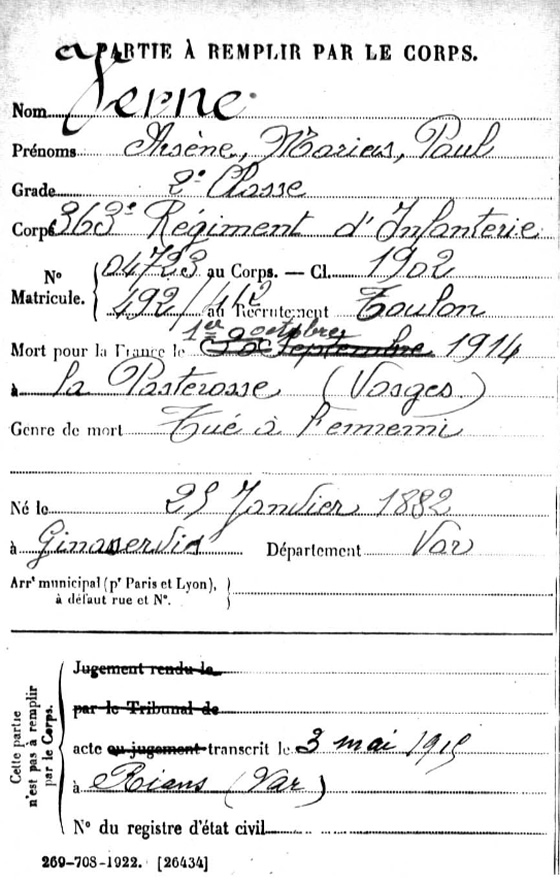 PARTIE À REMPLIR PAR LE CORPS.
Nom Verne
Prénoms Arsène, Marius, Paul
Grade 2e Classe
Corps 363e Régiment d'Infanterie
No Matricule. 04723 au Corps. — Cl. 1902
492/ au Recrutement Toulon
1er octobre
Mort pour la France le Septembre 1914
à la Pasterosse (Vosges)
Genre de mort Tué à l'ennemi
Né le 25 Janvier 1882
à Ginasservis Département Var
Arrt municipal (pr Paris et Lyon),
à défaut rue et No.
Cette partie n'est pas à remplir par le Corps.
Jugement rendu le
par le Tribunal de
acte ou jugement transcrit le 3 mai 1915
à Rians (Var)
No du registre d'état civil
269-708-1922. [26434]